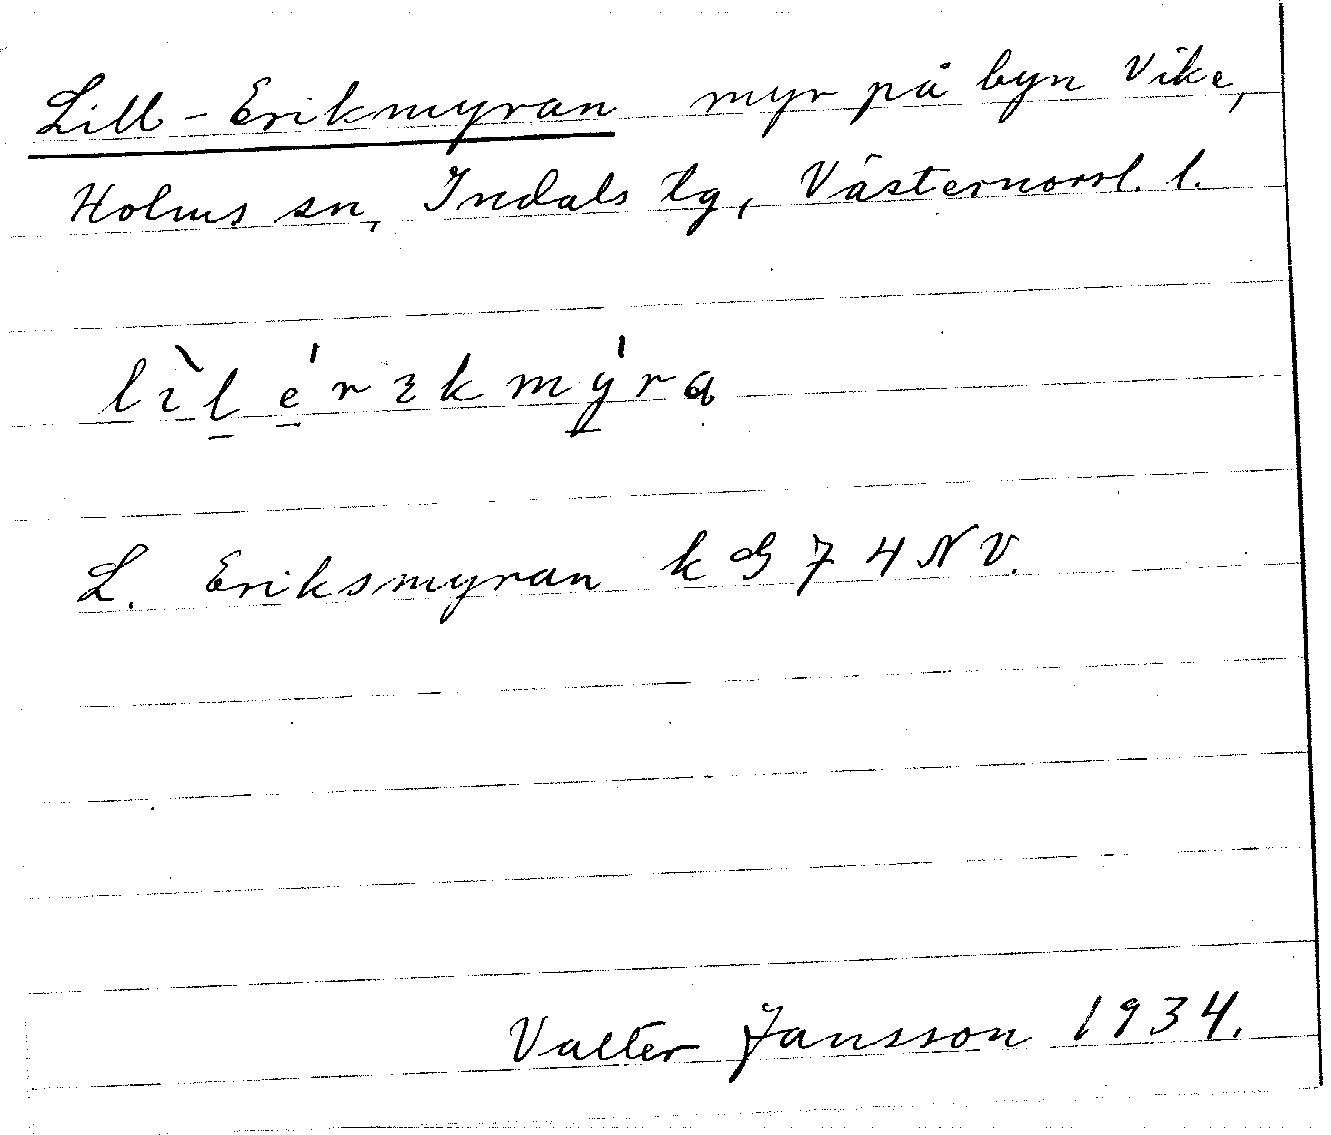 Lill-Erikmyran myr på byn Vike,
Holms sn, Indals tg, Västernorrl. l.
lìlérıkmýra
L. Eriksmyran k G 74 NV.
Valter Jansson 1934.